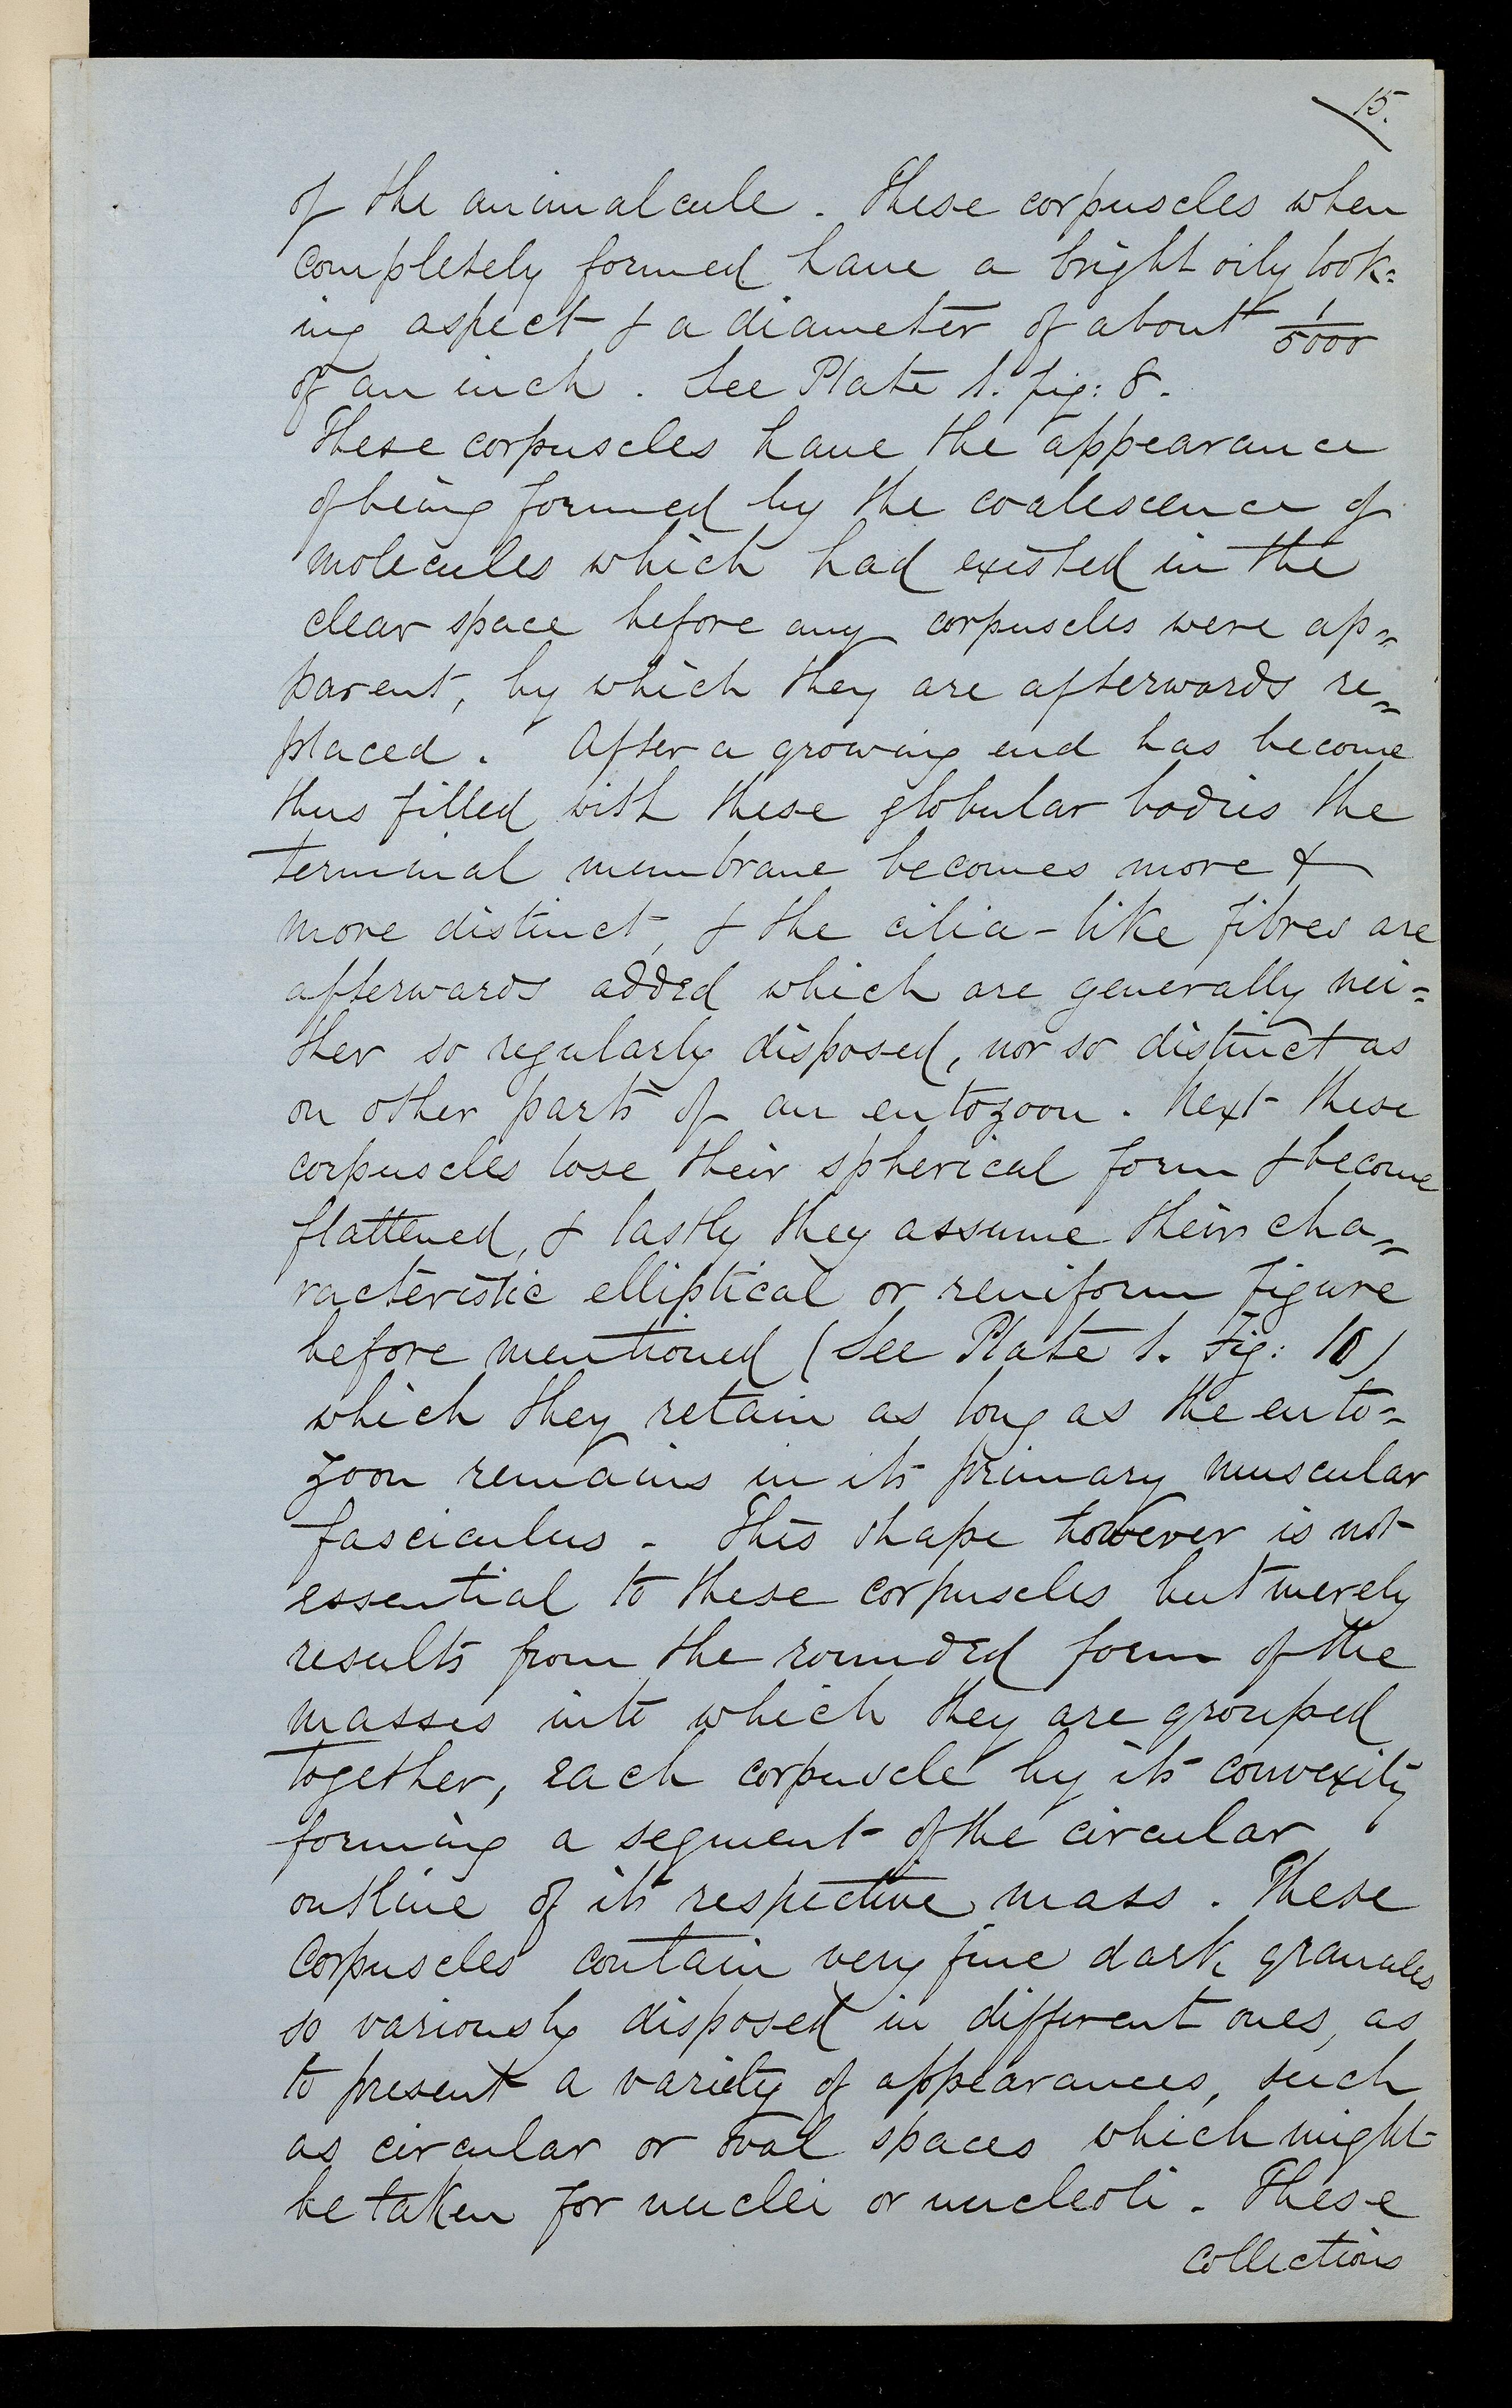 15.
of the animalcule. These corpuscles when
completely formed have a bright oily look=
ing aspect & a diameter of about 1/5000
of an inch. See Plate 1. fig: 8.
These corpuscles have the appearance
of being formed by the coalescence of
molecules which had existed in the
clear space before any corpuscles were ap=
parent, by which they are afterwards re=
placed. After a growing end has become
thus filled with these globular bodies the
terminal membrane becomes more &
more distinct, & the cilia-like fibres are
afterwards added which are generally nei=
ther so regularly disposed, nor so distinct as
on other parts of an entozoon. Next these
corpuscles lose their spherical form & become
flattened, & lastly they assume their cha=
racteristic elliptical or reniform figure
before mentioned (See Plate 1. Fig: 10)
which they retain as long as the ento=
zoon remains in its primary muscular
fasciculus. This shape however is not
essential to these corpuscles but merely
results from the rounded form of the
masses into which they are grouped
together, each corpuscle by its convexity
forming a segment of the circular
outline of its respective mass. These
corpuscles contain very fine dark granules
so variously disposed in different ones, as
to present a variety of appearances, such
as circular or oval spaces which might
be taken for nuclei or nucleoli. These
collections